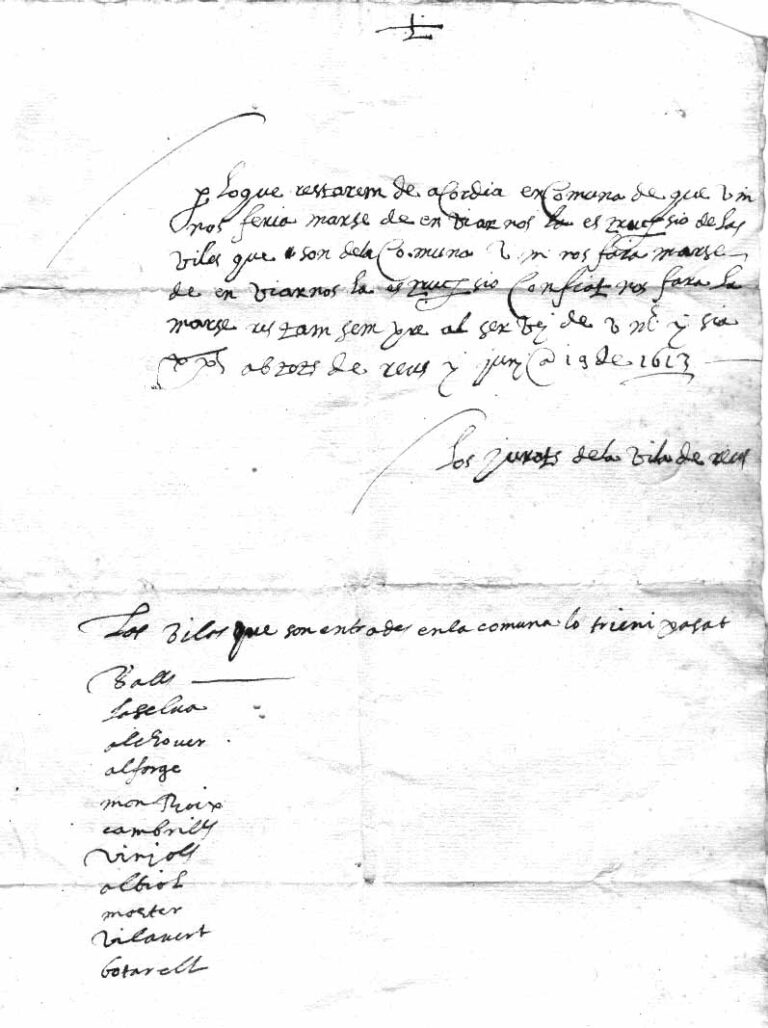 ꝑ loque restarem de acordia en Comuna de que v m
nos feria marse de en viar nos la es trucsio de las
viles que son dela Comuna v. m nos fara marse
de en viarnos la estrucsio Confiat nos fara la
marse restam sem pre al ser vej de v m y
abtots de reus y juny @ 19 de 1613
Los jurats dela vila de reus
Les viles que son entrades en la comuna lo trieni pasat
Valls
laselva
alchover
alforge
mon Roix
cambrills
vinjols
albiol
moster
vilavert
botarell